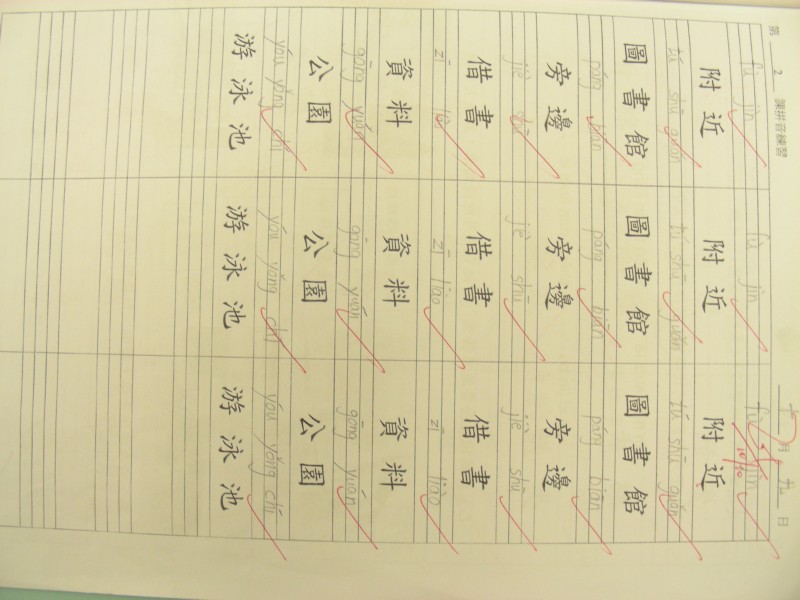 第 2 課拼音練習 十月九日
10/10
fù jìn fù jìn fù jìn
附近 附近 附近
tú shū guǎn tú shū guǎn tú shū guǎn
圖書館 圖書館 圖書館
páng biān páng biān páng biān
旁邊 旁邊 旁邊
jiè shū jiè shū jiè shū
借書 借書 借書
zī liào zī liào zī liào
資料 資料 資料
gōng yuán gōng yuán gōng yuán
公園 公園 公園
yóu yǒng chí yóu yǒng chí yóu yǒng chí
游泳池 游泳池 游泳池